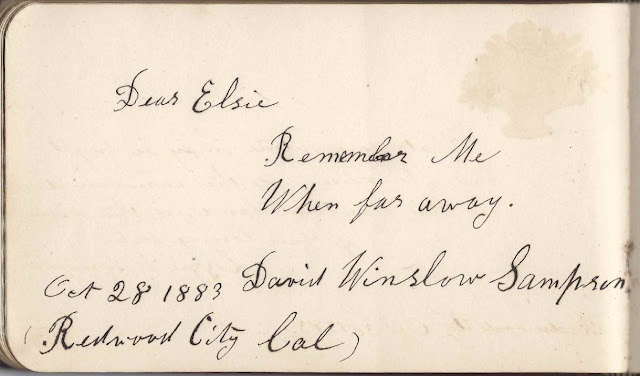 Dear Elsie
Remember Me
When far away.
Oct 28 1883 David Winslow Sampson
(Redwood City Cal)